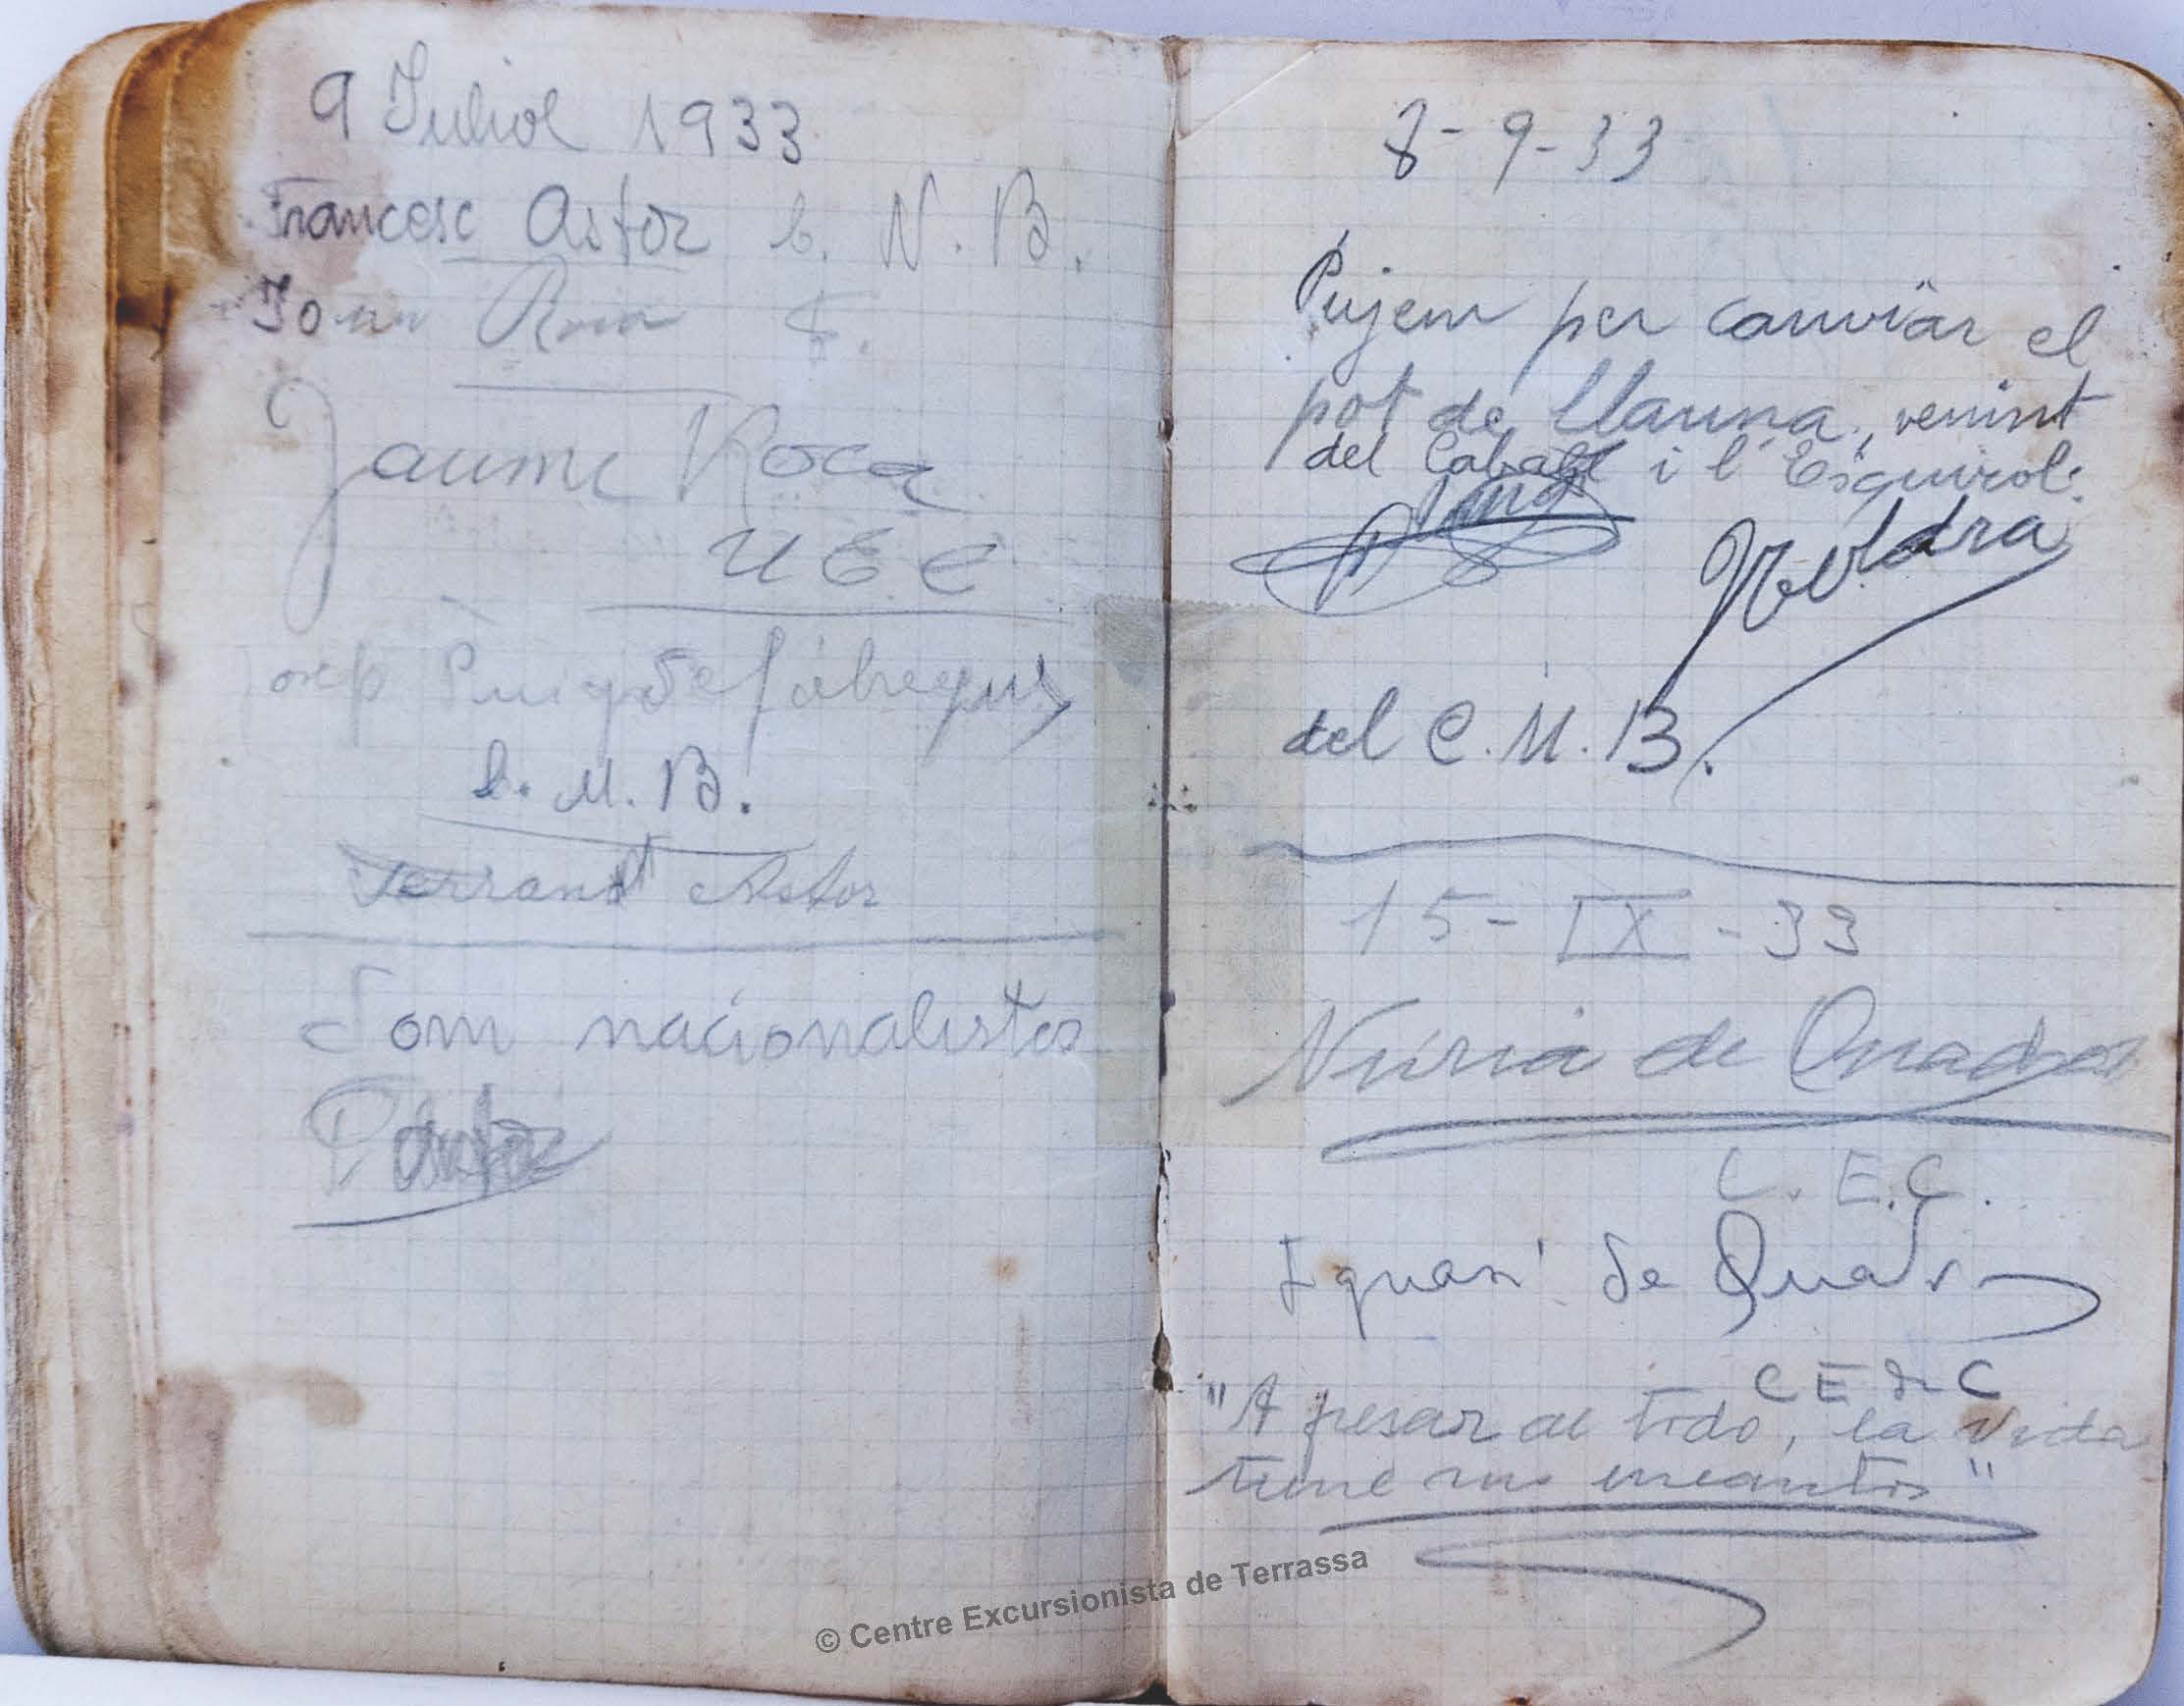 9 Juliol 1933
Francesc Astor C. N. B.
Joan
Jaume Roca
U E C
Josep Puigdefábregas
C. M. B.
Ferrand Astor
Som nacionalistes
8-9-33
Pujem per canviar el
pot de llauna, venint
del Caball i l'Esquirol.
Roldra
del C. M. B.
15-IX-33
Núria de Quadras
C. E. C.
Ignasi de Quadras
C E de C
"A pesar de todo, la vida
tiene sus encantos"
© Centre Excursionista de Terrassa